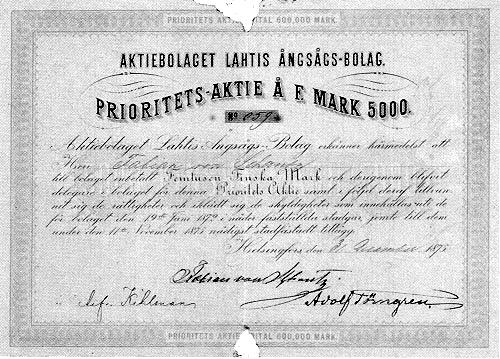 PRIORITETS AKTIE KAPITAL 600,000 MARK.
AKTIEBOLAGET LAHTIS ÅNGSÅGS-BOLAG.
PRIORITETS-AKTIE Å F. MARK 5000.
No 059
Aktiebolaget Lahtis Ångsågs-Bolag erkänner härmedelst att
Herr Fabian von Schantz
till bolaget inbetalt Femtusen Finska Mark och derigenom blifvit
delegare i bolaget för denna Prioritets Aktie samt i följd deraf tillvun-
nit sig de rättigheter och iklädt sig de skyldigheter som innehållas uti de
för bolaget den 19de Juni 1872 i nåder fastställda stadgar, jemte till dem
under den 11te November 1875 nådigst stadfästadt tillägg.
Helsingfors den 31 December 1875
Fabian von Schantz
Alf. Kihlman Adolf Törngren.
PRIORITETS AKTIE KAPITAL 600,000 MARK.